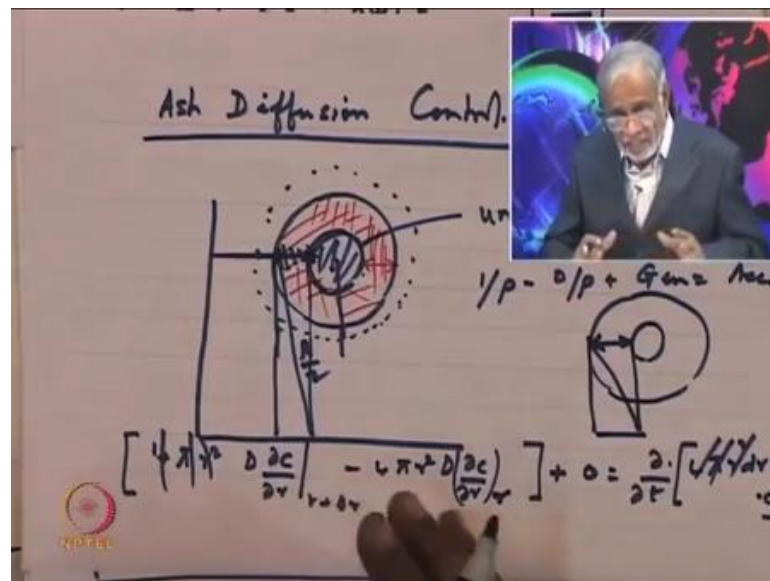 Ash Diffusion Control.
un
I/P - O/P + Gen = Acc
[4πr² D ∂c/∂r |r+Δr - 4πr² D (∂c/∂r)r] + 0 = ∂/∂t [4πr² dr .c
NPTEL